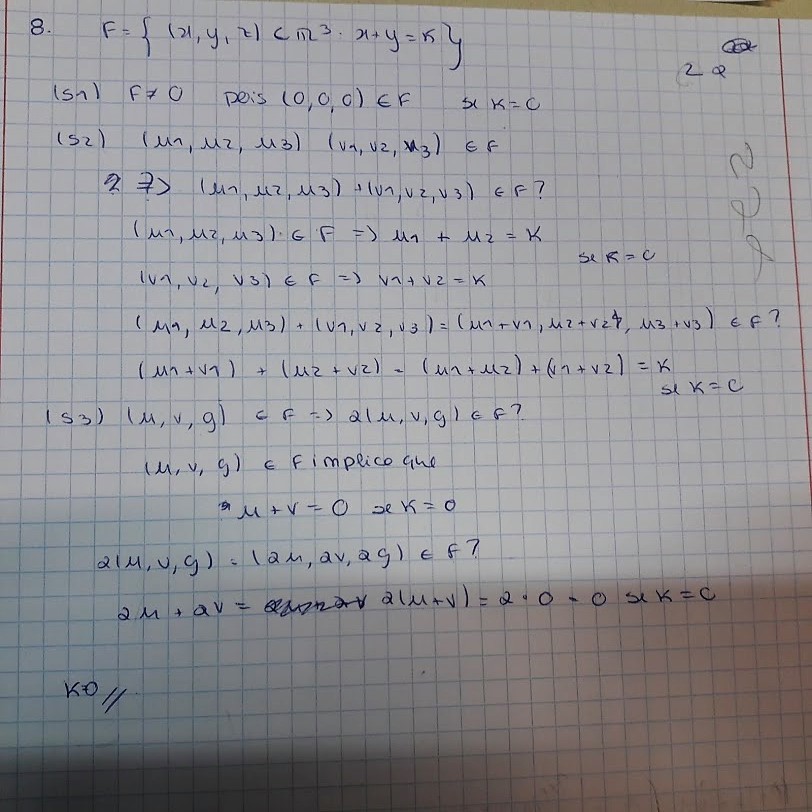 8. F = { (x, y, z) ∈ IR³ : x + y = K }
(S1) F ≠ 0 pois (0,0,0) ∈ F se K = 0
(S2) (u1, u2, u3) (v1, v2, v3) ∈ F
=> (u1, u2, u3) + (v1, v2, v3) ∈ F ?
(u1, u2, u3) ∈ F => u1 + u2 = K
se K = 0
(v1, v2, v3) ∈ F => v1 + v2 = K
(u1, u2, u3) + (v1, v2, v3) = (u1 + v1, u2 + v2, u3 + v3) ∈ F ?
(u1 + v1) + (u2 + v2) = (u1 + u2) + (v1 + v2) = K
se K = 0
(S3) (u, v, g) ∈ F => a(u, v, g) ∈ F ?
(u, v, g) ∈ F implica que
u + v = 0 se K = 0
a(u, v, g) = (au, av, ag) ∈ F ?
au + av = a(u + v) = a · 0 = 0 se K = 0
K=0 //